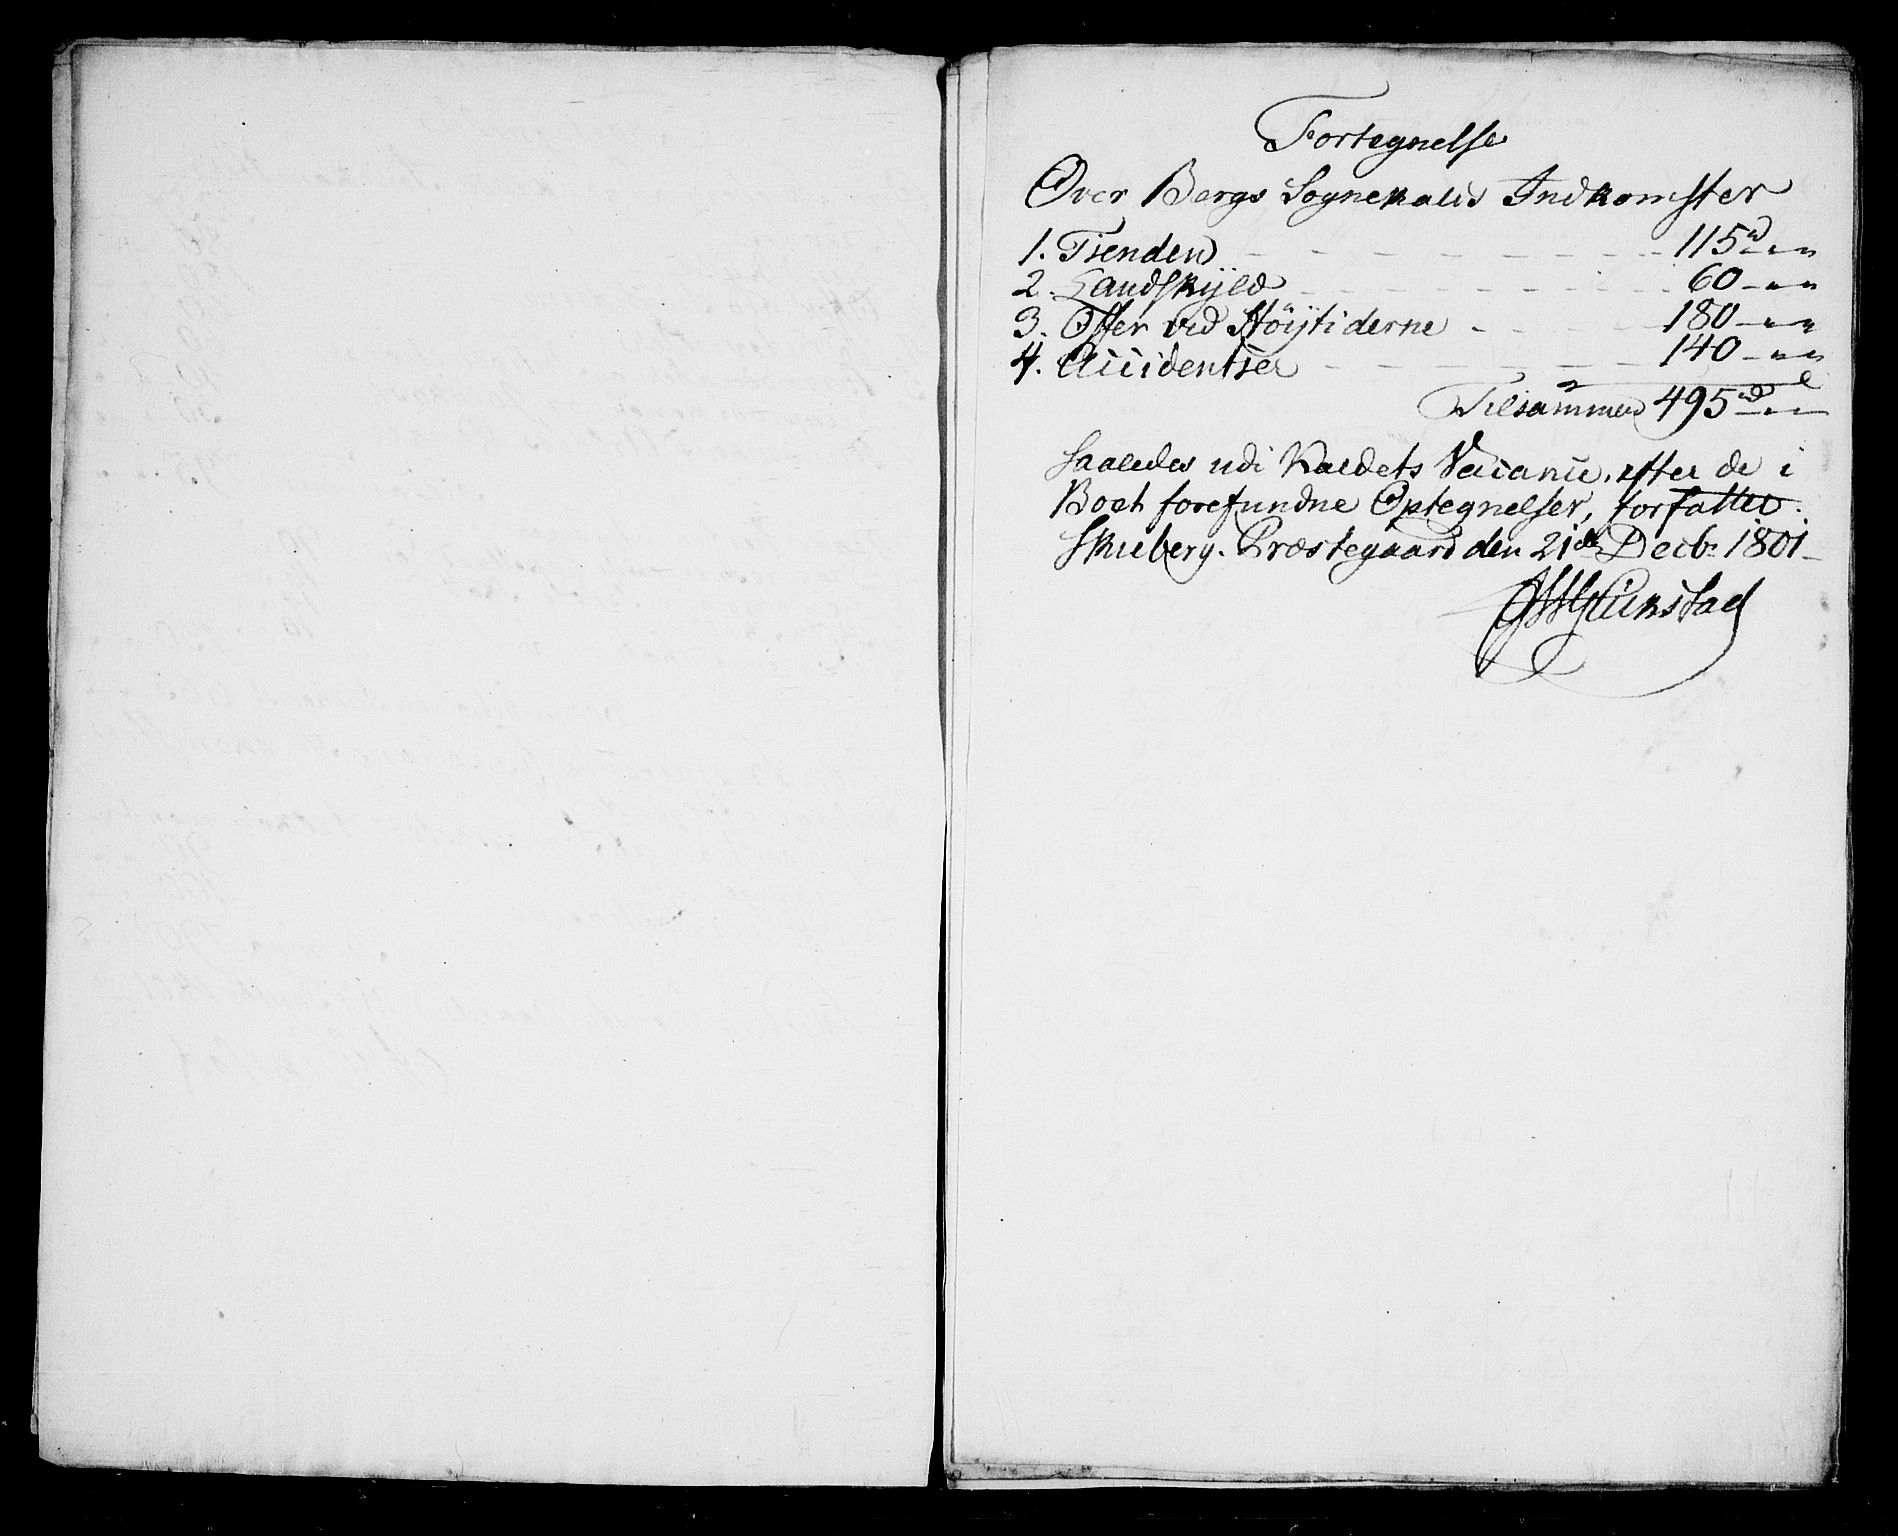 Fortegnelse
Over Bergs Sognekalds Indkomster
1. Tienden - - - - - - - 115rd " "
2. Landskyld - - - - - - 60 - " "
3. Offer ved Höÿtiderne - - - - 180 - " "
4. Accidentser - - - - - - 140 - " "
Tilsammen 495rd - -
Saaledes udi Kaldets Vacance, efter de i
Boet forefundne Optegnelser, forfattet.
Skieberg Præstegaard den 21de Decbr 1801